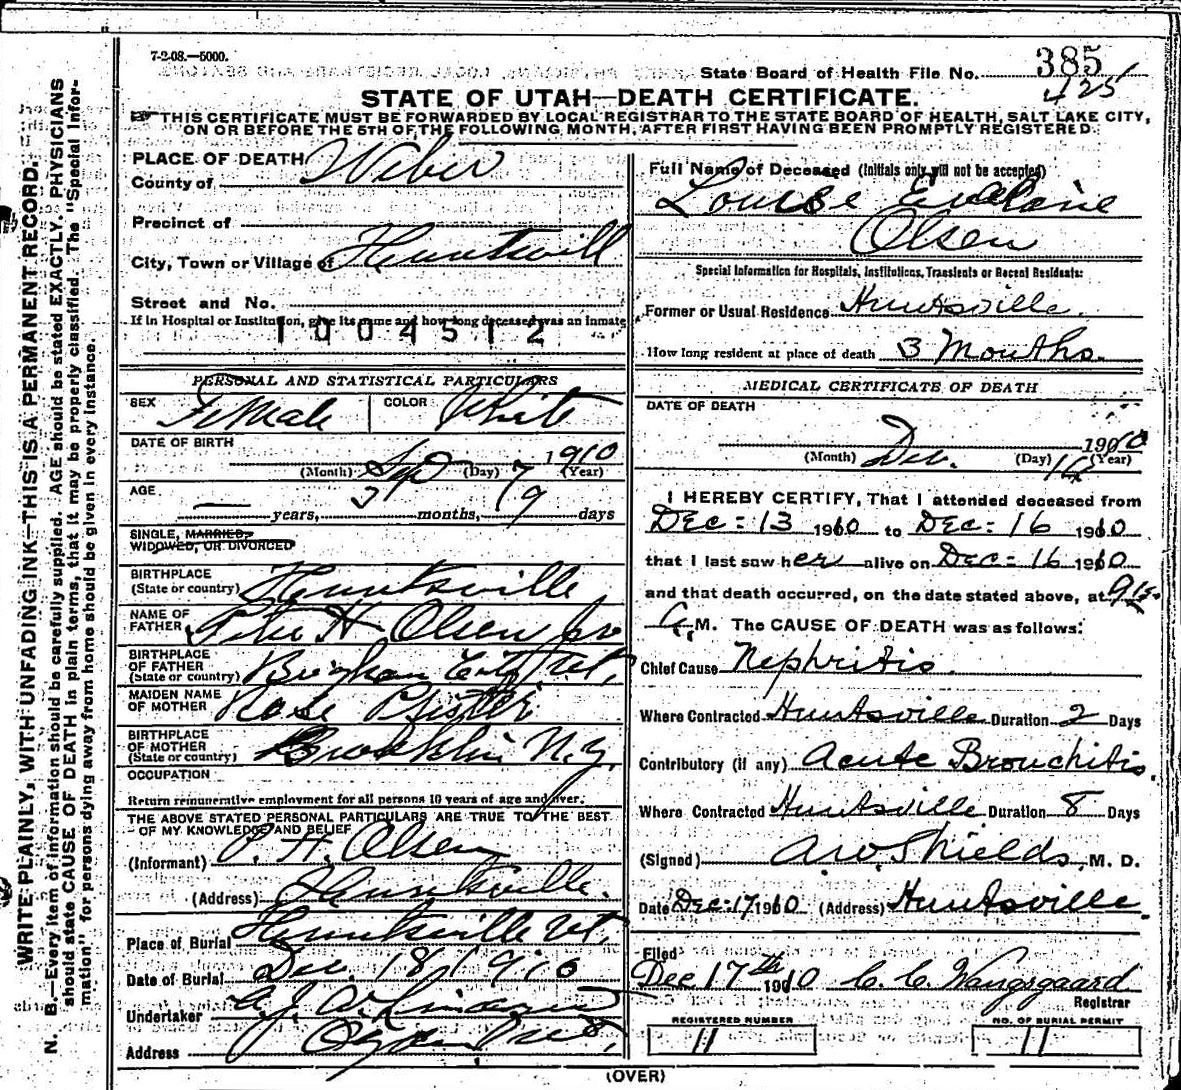 7-2-08.—5000.
State Board of Health File No. 385
425
STATE OF UTAH—DEATH CERTIFICATE.
THIS CERTIFICATE MUST BE FORWARDED BY LOCAL REGISTRAR TO THE STATE BOARD OF HEALTH, SALT LAKE CITY,
ON OR BEFORE THE 5TH OF THE FOLLOWING MONTH, AFTER FIRST HAVING BEEN PROMPTLY REGISTERED.
WRITE PLAINLY, WITH UNFADING INK—THIS IS A PERMANENT RECORD.
N. B.—Every item of information should be carefully supplied. AGE should be stated EXACTLY. PHYSICIANS
should state CAUSE OF DEATH in plain terms, that it may be properly classified. The "Special Infor-
mation" for persons dying away from home should be given in every instance.
PLACE OF DEATH
County of Weber
Precinct of
City, Town or Village of Huntsvill
Street and No.
If in Hospital or Institution, give its name and how long deceased was an inmate
1004512
PERSONAL AND STATISTICAL PARTICULARS
SEX Female COLOR White
DATE OF BIRTH
(Month) Sep (Day) 7 (Year) 1910
AGE
— years, 3 months, 9 days
SINGLE, MARRIED,
WIDOWED, OR DIVORCED
BIRTHPLACE
(State or country) Huntsville
NAME OF
FATHER Peter H Olsen jr
BIRTHPLACE
OF FATHER
(State or country) Brigham City Ut.
MAIDEN NAME
OF MOTHER Rose
BIRTHPLACE
OF MOTHER
(State or country) Brooklin N.Y.
OCCUPATION
Return remunerative employment for all persons 10 years of age and over.
THE ABOVE STATED PERSONAL PARTICULARS ARE TRUE TO THE BEST
OF MY KNOWLEDGE AND BELIEF
(Informant) P. H. Olsen
(Address) Huntsville.
Place of Burial Huntsville Ut.
Date of Burial Dec. 18, 1910
Undertaker
Address Ogden
Full Name of Deceased (Initials only will not be accepted)
Louise Evelaine
Olsen
Special Information for Hospitals, Institutions, Transients or Recent Residents:
Former or Usual Residence Huntsville.
How long resident at place of death 3 Months.
MEDICAL CERTIFICATE OF DEATH
DATE OF DEATH
(Month) Dec. (Day) 16 (Year) 1910
I HEREBY CERTIFY, That I attended deceased from
Dec: 13 1910 to Dec: 16 1910
that I last saw her alive on Dec: 16 1910
and that death occurred, on the date stated above, at 9 15
A. M. The CAUSE OF DEATH was as follows:
Chief Cause Nephritis.
Where Contracted Huntsville Duration 2 Days
Contributory (if any) Acute Bronchitis.
Where Contracted Huntsville Duration 8 Days
(Signed) A. W. Shields M. D.
Date Dec: 17 1910 (Address) Huntsville.
Filed
Dec 17th 1910 C. C. Wangsgaard
Registrar
REGISTERED NUMBER
11
NO. OF BURIAL PERMIT
11
(OVER)